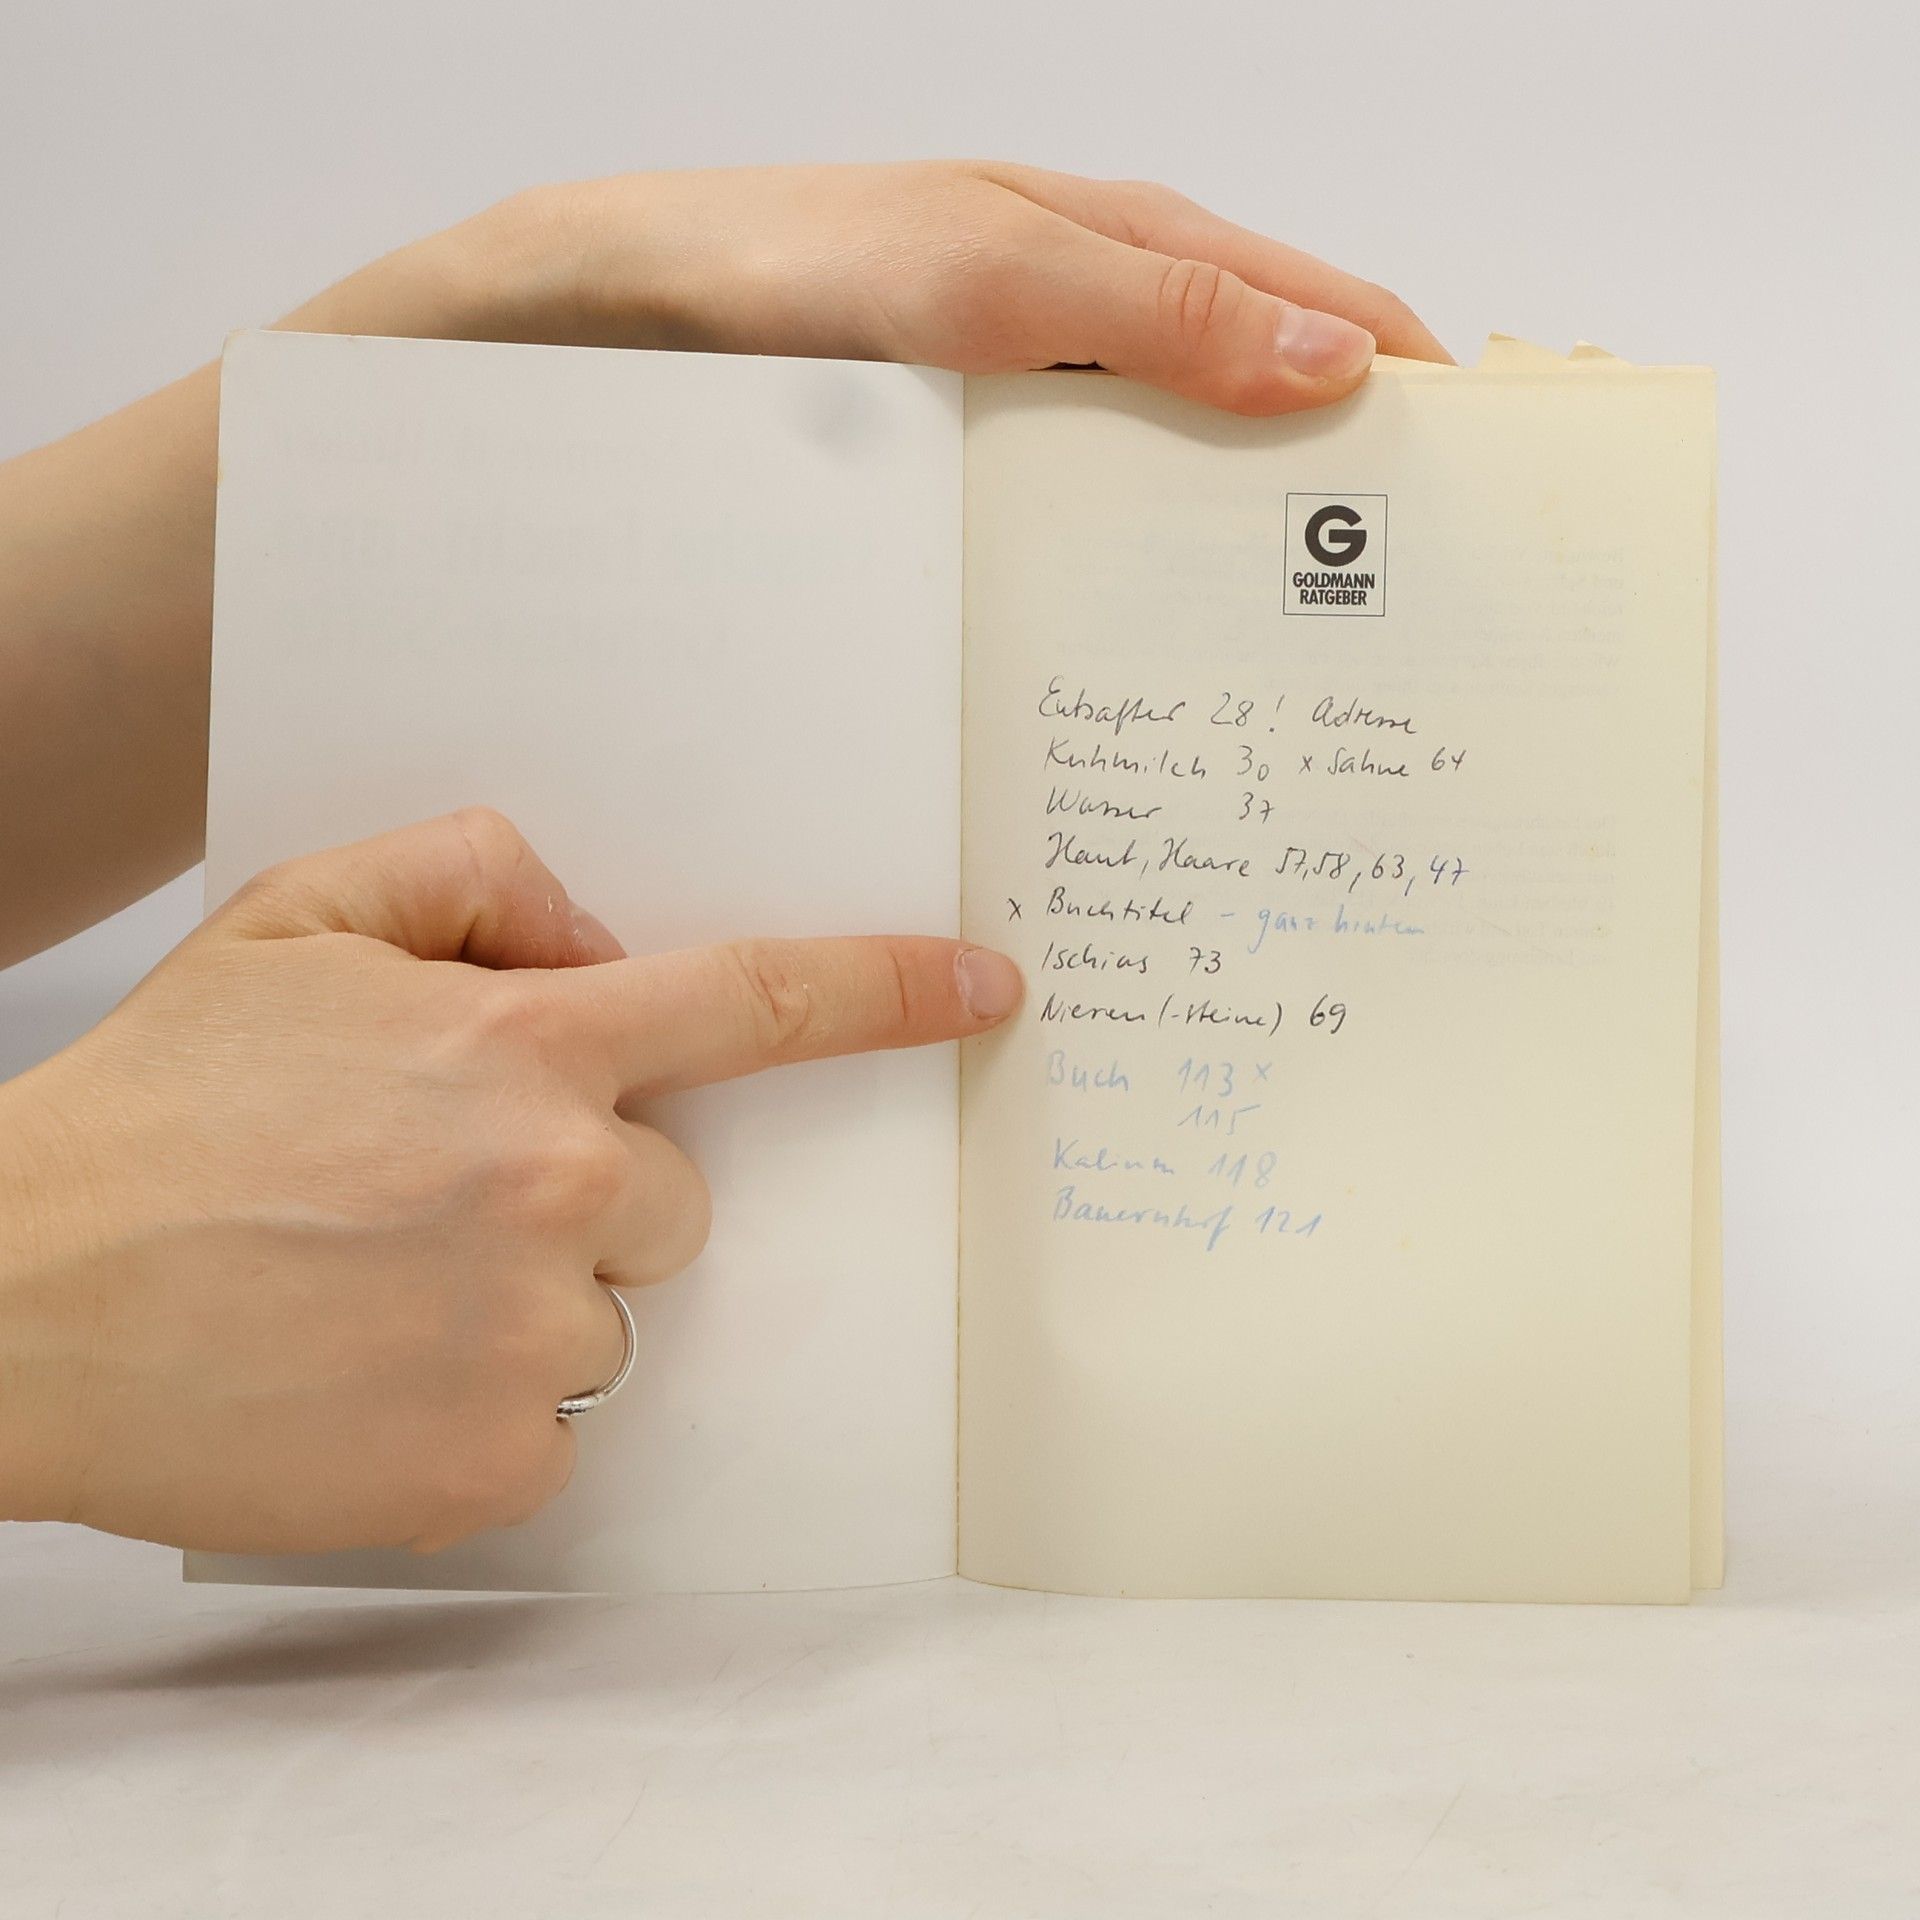 G
GOLDMANN
RATGEBER
Entsafter 28! Adresse
Kuhmilch 30 x Sahne 64
Wasser 37
Haut, Haare 57, 58, 63, 47
x Buchtitel - ganz hinten
Ischias 73
Nieren (-steine) 69
Buch 113 x
115
Kalium 118
Bauernhof 121